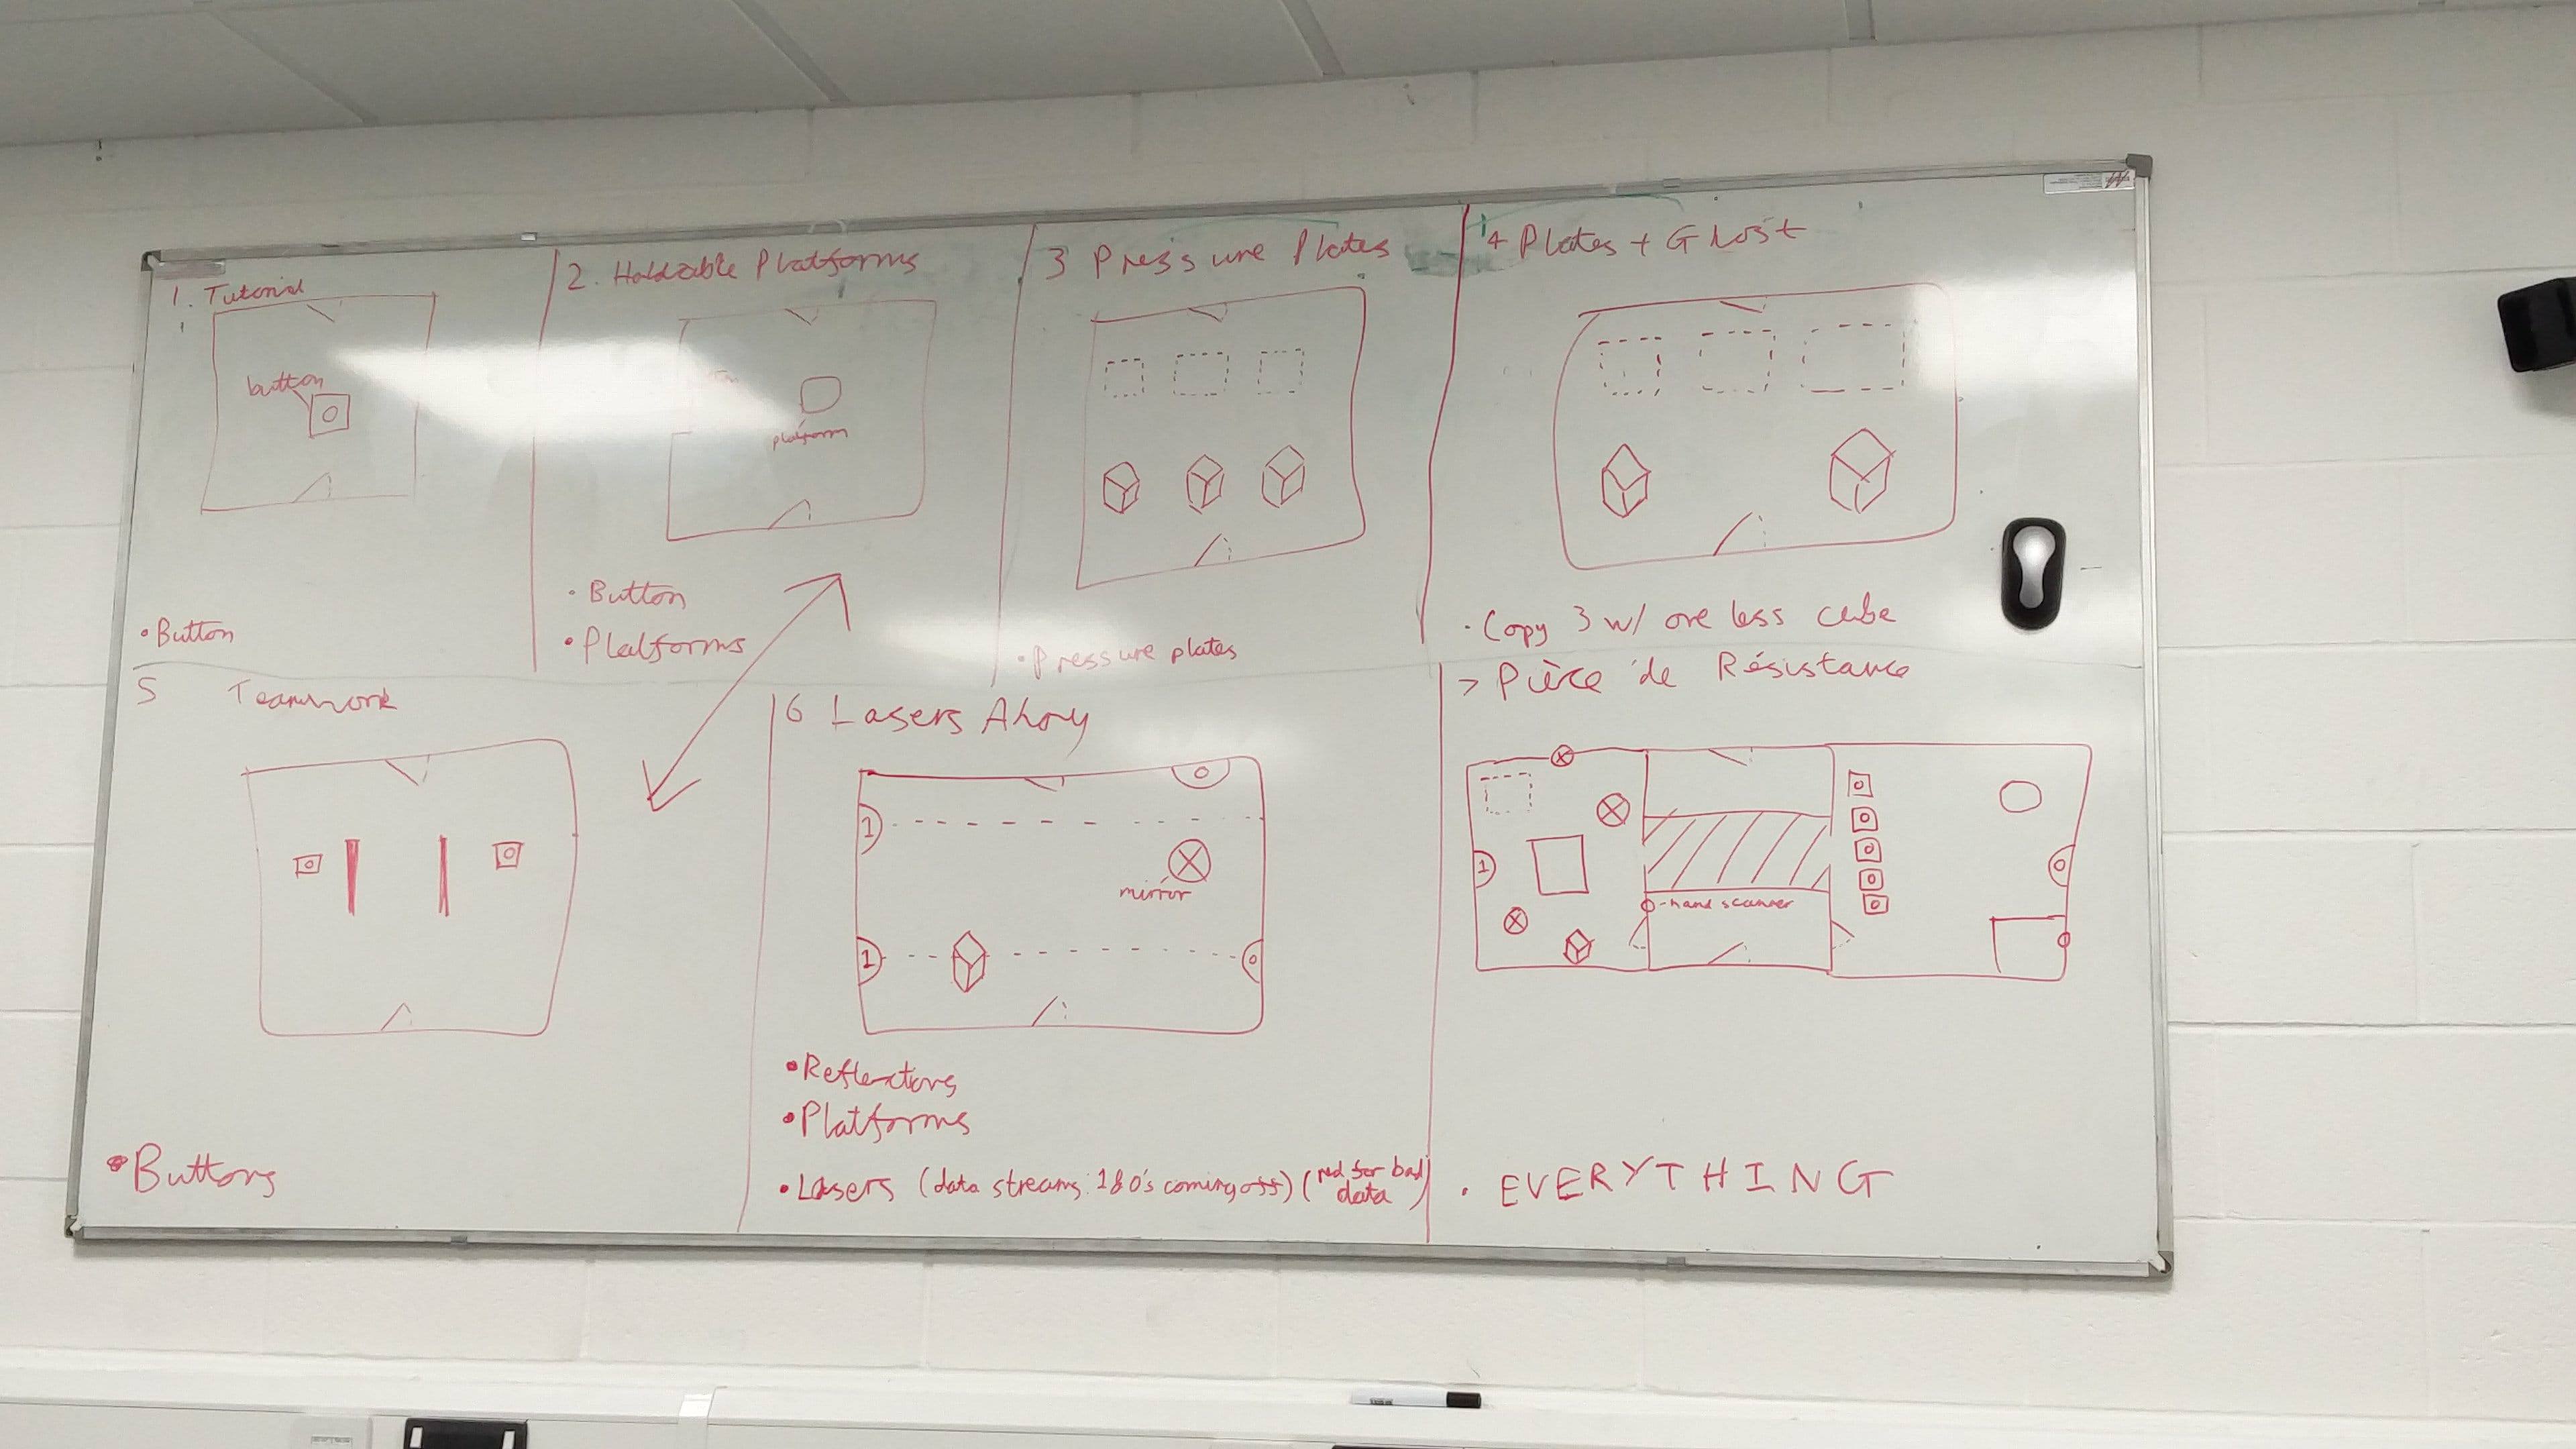 1. Tutorial
button
• Button
2. Holdable Platforms
platform
• Button
• Platforms
3 Pressure Plates
• Pressure plates
4 Plates + Ghost
• Copy 3 w/ one less cube
5 Teamwork
• Buttons
6 Lasers Ahoy
1
0
1
0
mirror
• Reflectors
• Platforms
• Lasers (data streams: 1&0's coming off) (red for bad data)
7 Pièce de Résistance
1
0
-hand scanner
• EVERYTHING